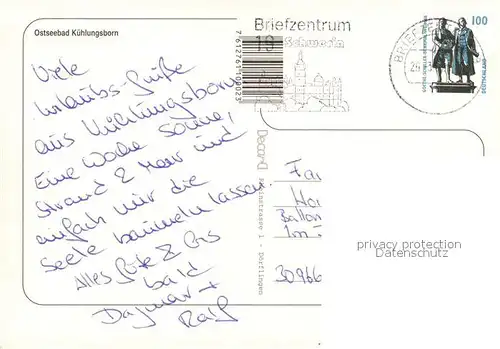 Ostseebad Kühlungsborn
Viele
Urlaubs-Grüße
aus Kühlungsborn
Eine Woche Sonne,
Strand & Meer und
einfach mir die
Seele baumeln lassen.
Alles Gute & bis
bald
Dagmar +
Ralf
Briefzentrum
19
Schwerin
7612767110023
BRIEFZE
100
GOETHE-SCHILLER-DENKMAL
DEUTSCHLAND
Decard
Dörflingen
Fa
Ha
Ballon
Im
30966
privacy protection
Datenschutz